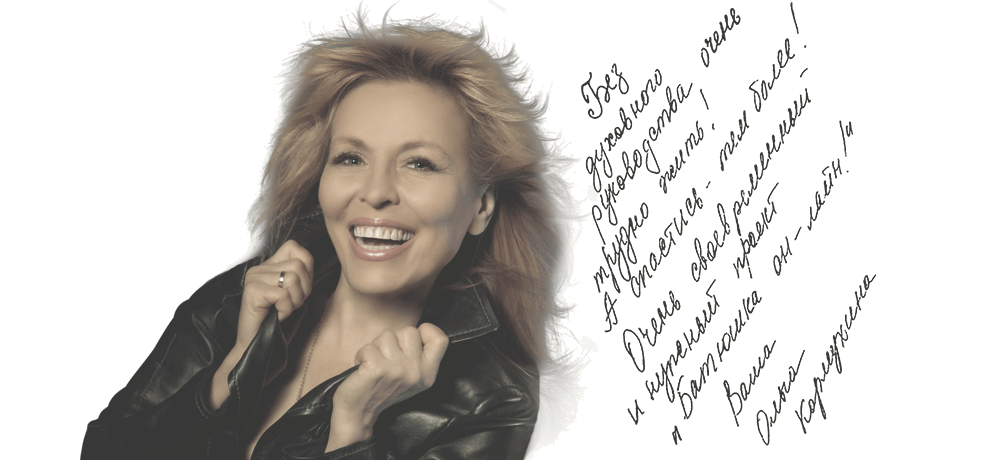 Без
духовного
руководства очень
трудно жить!
А спастись - тем более!
Очень своевременный
и нужный проект
"Батюшка он-лайн!"
Ваша
Ольга
Кормухина